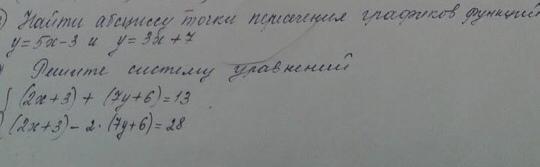 ) Найти абсциссу точки пересечения графиков функций
y=5x-3 и y=3x+7
Решите систему уравнений
{ (2x+3) + (7y+6)=13
(2x+3)-2·(7y+6)=28